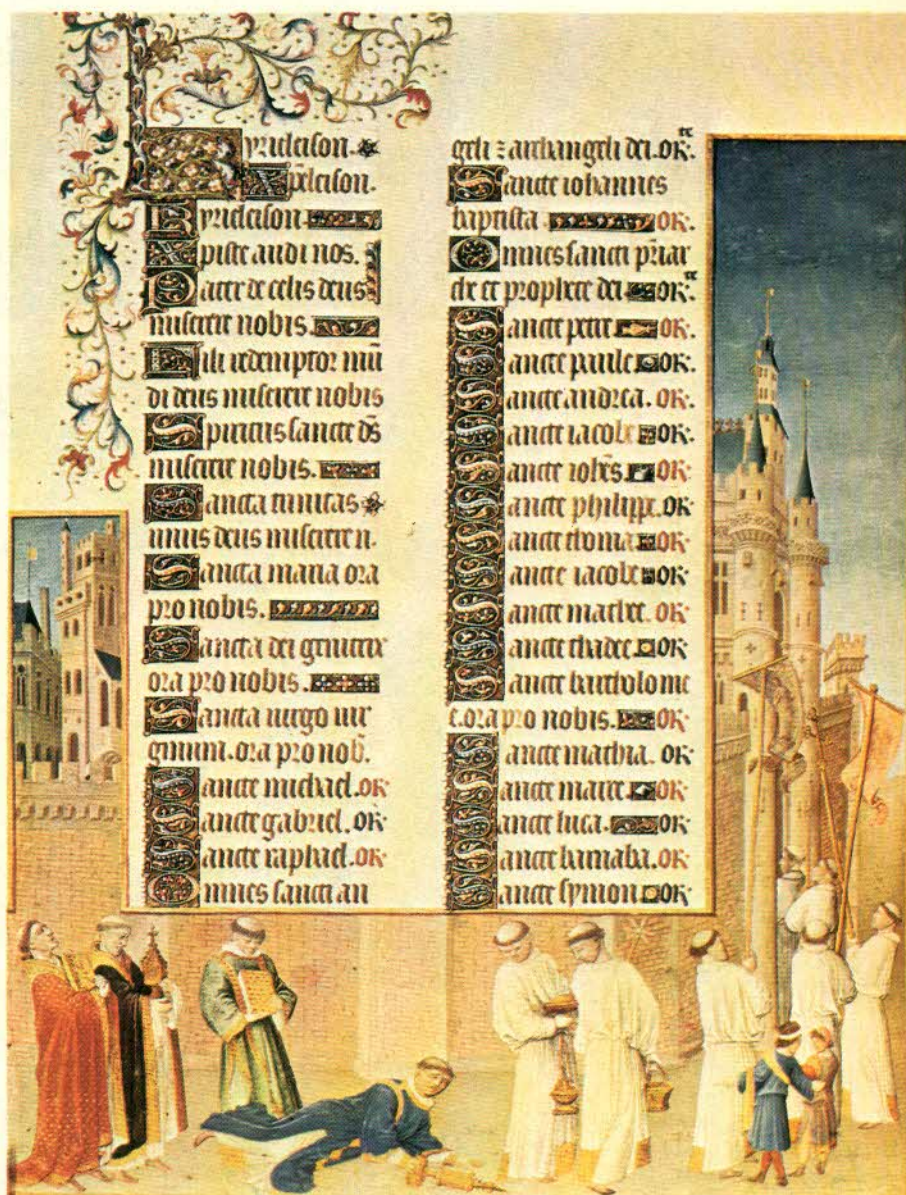 Kyrieleison.
Xpeleison.
Kyrieleison.
Xpiste audi nos.
Pater de celis deus
miserere nobis.
Fili redemptor mu
di deus miserere nobis
Spiritus sancte ds
miserere nobis.
Sancta trinitas
unus deus miserere n.
Sancta maria ora
pro nobis.
Sancta dei genitrix
ora pro nobis.
Sancta virgo vir
ginum. ora pro nob.
Sancte michael. or.
Sancte gabriel. or.
Sancte raphael. or.
Omnes sancti an
geli z archangeli dei. or.te
Sancte iohannes
baptista. or.
Omnes sancti priar
che et prophete dei or.te
Sancte petre or.
Sancte paule or.
Sancte andrea. or.
Sancte iacobe or.
Sancte iohes. or.
Sancte philippe. or
Sancte thoma or.
Sancte iacobe or.
Sancte mathee. or.
Sancte thadee or.
Sancte bartholome
e. ora pro nobis. or.
Sancte mathia. or.
Sancte marce or.
Sancte luca. or.
Sancte barnaba. or.
Sancte symon or.